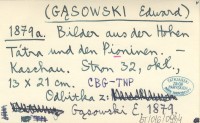 (GĄSOWSKI Edward)
1879a. Bilder aus der Hohen
Tátra und den Pioninen. –
Kaschau. Stron 32, obl.,
13 x 21 cm. CBG-TNP
Odbitka z:
Gąsowski E, 1879